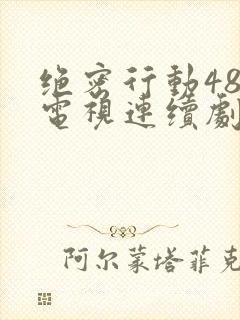 绝密行動48
電視連續劇
阿尔蒙塔菲克